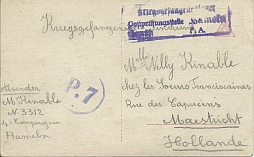 Kriegsgefangenensendung
Kriegsgefangenen
Postprüfungsstelle Hameln
Geprüft F. A.
P.7
Absender
M Kinable
N 3312
4e Compagnie
Hameln
Melle Nelly Kinable
chez les Soeurs Franciscaines
Rue des Capucins
Maestricht
Hollande